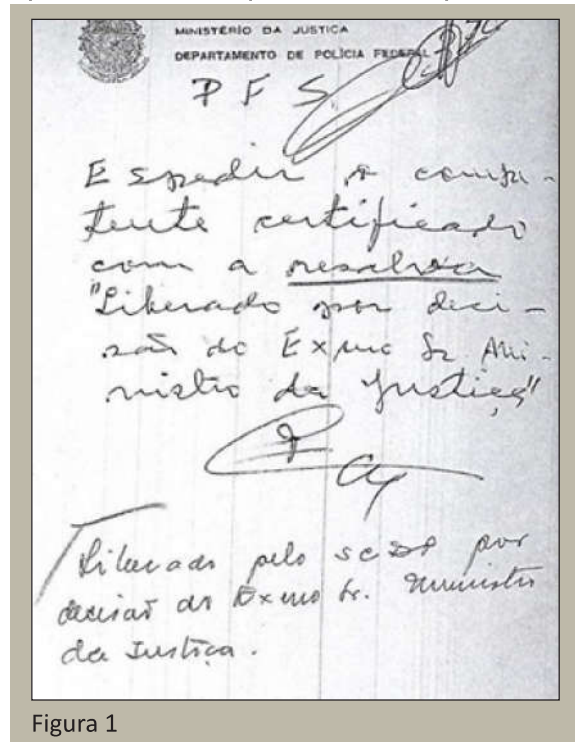 MINISTÉRIO DA JUSTIÇA
DEPARTAMENTO DE POLÍCIA FEDERAL
P F S
Espedir o compe-
tente certificado
com a resalva
"Liberado por deci-
são do Exmo Sr Mi-
nistro da Justiça"
Liberado pelo SCDP por
decisão do Exmo Sr. Ministro
da Justiça.
Figura 1